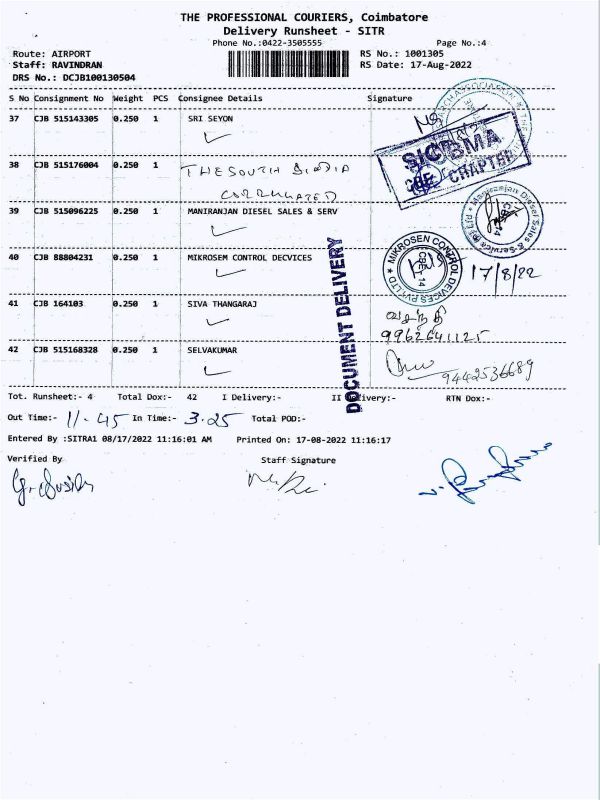 THE PROFESSIONAL COURIERS, Coimbatore
Delivery Runsheet - SITR
Phone No.:0422-3505555 Page No.:4
Route: AIRPORT RS No.: 1001305
Staff: RAVINDRAN RS Date: 17-Aug-2022
DRS No.: DCJB100130504
S No Consignment No Weight PCS Consignee Details Signature
37 CJB 515143305 0.250 1 SRI SEYON
SICBMA
CBE CHAPTER
38 CJB 515176004 0.250 1 THE SOUTH INDIA
CORRUGATED
39 CJB 515096225 0.250 1 MANIRANJAN DIESEL SALES & SERV
Maniranjan Diesel Sales & Service
40 CJB 88804231 0.250 1 MIKROSEM CONTROL DECVICES
MIKROSEN CONTROL DEVICES PVT LTD
CBE 14
17/8/22
41 CJB 164103 0.250 1 SIVA THANGARAJ
வசந்தி
9962641125
42 CJB 515168328 0.250 1 SELVAKUMAR
9442536689
DOCUMENT DELIVERY
Tot. Runsheet:- 4 Total Dox:- 42 I Delivery:- II Delivery:- RTN Dox:-
Out Time:- 11.45 In Time:- 3.25 Total POD:-
Entered By :SITRA1 08/17/2022 11:16:01 AM Printed On: 17-08-2022 11:16:17
Verified By Staff Signature